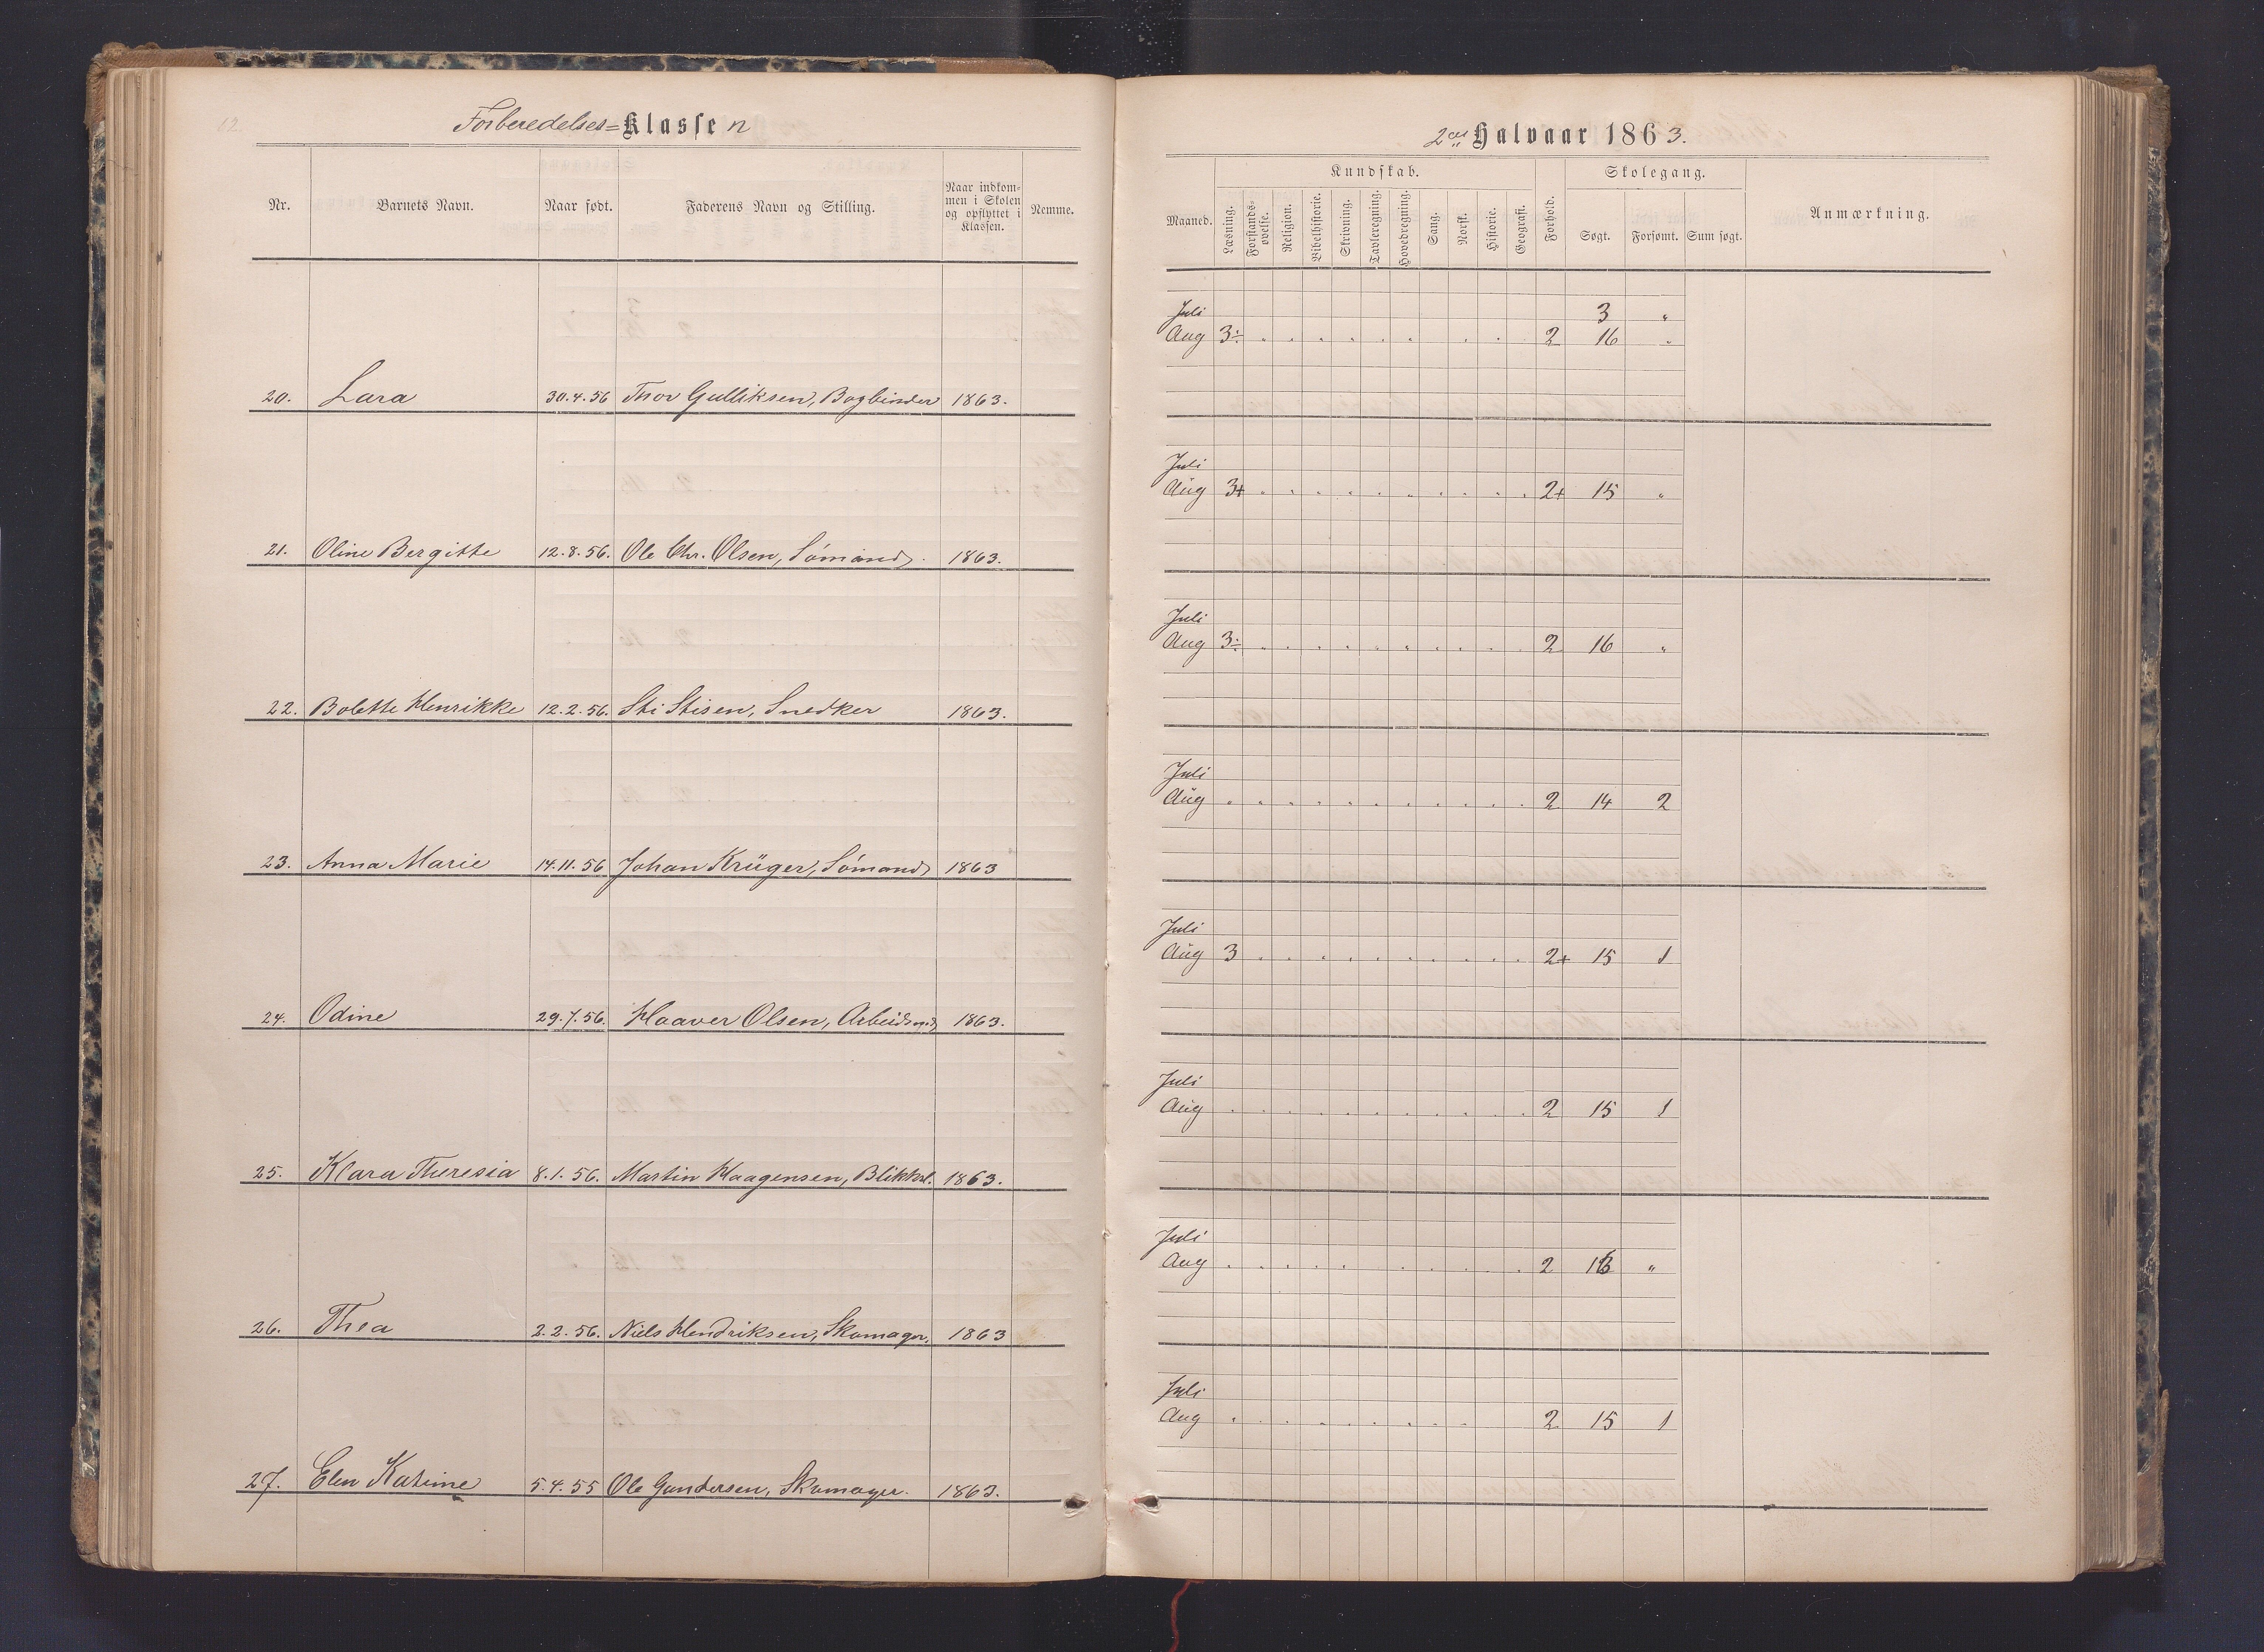 Forberedelses=Klassen
Nr. Barnets Navn. Naar født. Faderens Navn og Stilling. Naar indkom-
men i Skolen
og opflyttet i
Klassen. Nemme.
20. Lara 30.4.56 Thor Gulliksen, Bogbinder 1863.
21. Oline Bergitte 12.8.56. Ole Chr. Olsen, Sömand. 1863.
22. Bolette Henrikke 12.2.56. Sti Stisen, Snedker 1863.
23. Anna Marie 14.11.56 Johan Krüger, Sömand 1863
24. Odine 29.7.56. Haaver Olsen, Arbeidsmd 1863.
25. Klara Theresia 8.1.56. Martin Haagensen, Blikksl. 1863.
26. Thea 2.2.56. Niels Hendriksen, Skomager. 1863
27. Elen Katrine 5.4.55 Ole Gundersen, Skomager. 1863.
2det Halvaar 1863.
Maaned. Kundskab. Forhold. Skolegang. Anmærkning.
Læsning. Forstands-
øvelse. Religion. Bibelhistorie. Skrivning. Tavleregning. Hovedregning. Sang. Norsk. Historie. Geografi. Søgt. Forsømt. Sum søgt.
Juli 3 "
Aug 3÷ 2 16 "
Juli
Aug 3+ 2+ 15 "
Juli
Aug 3÷ 2 16 "
Juli
Aug " 2 14 2
Juli
Aug 3 2+ 15 1
Juli
Aug 2 15 1
Juli
Aug 2 16 "
Juli
Aug 2 15 1